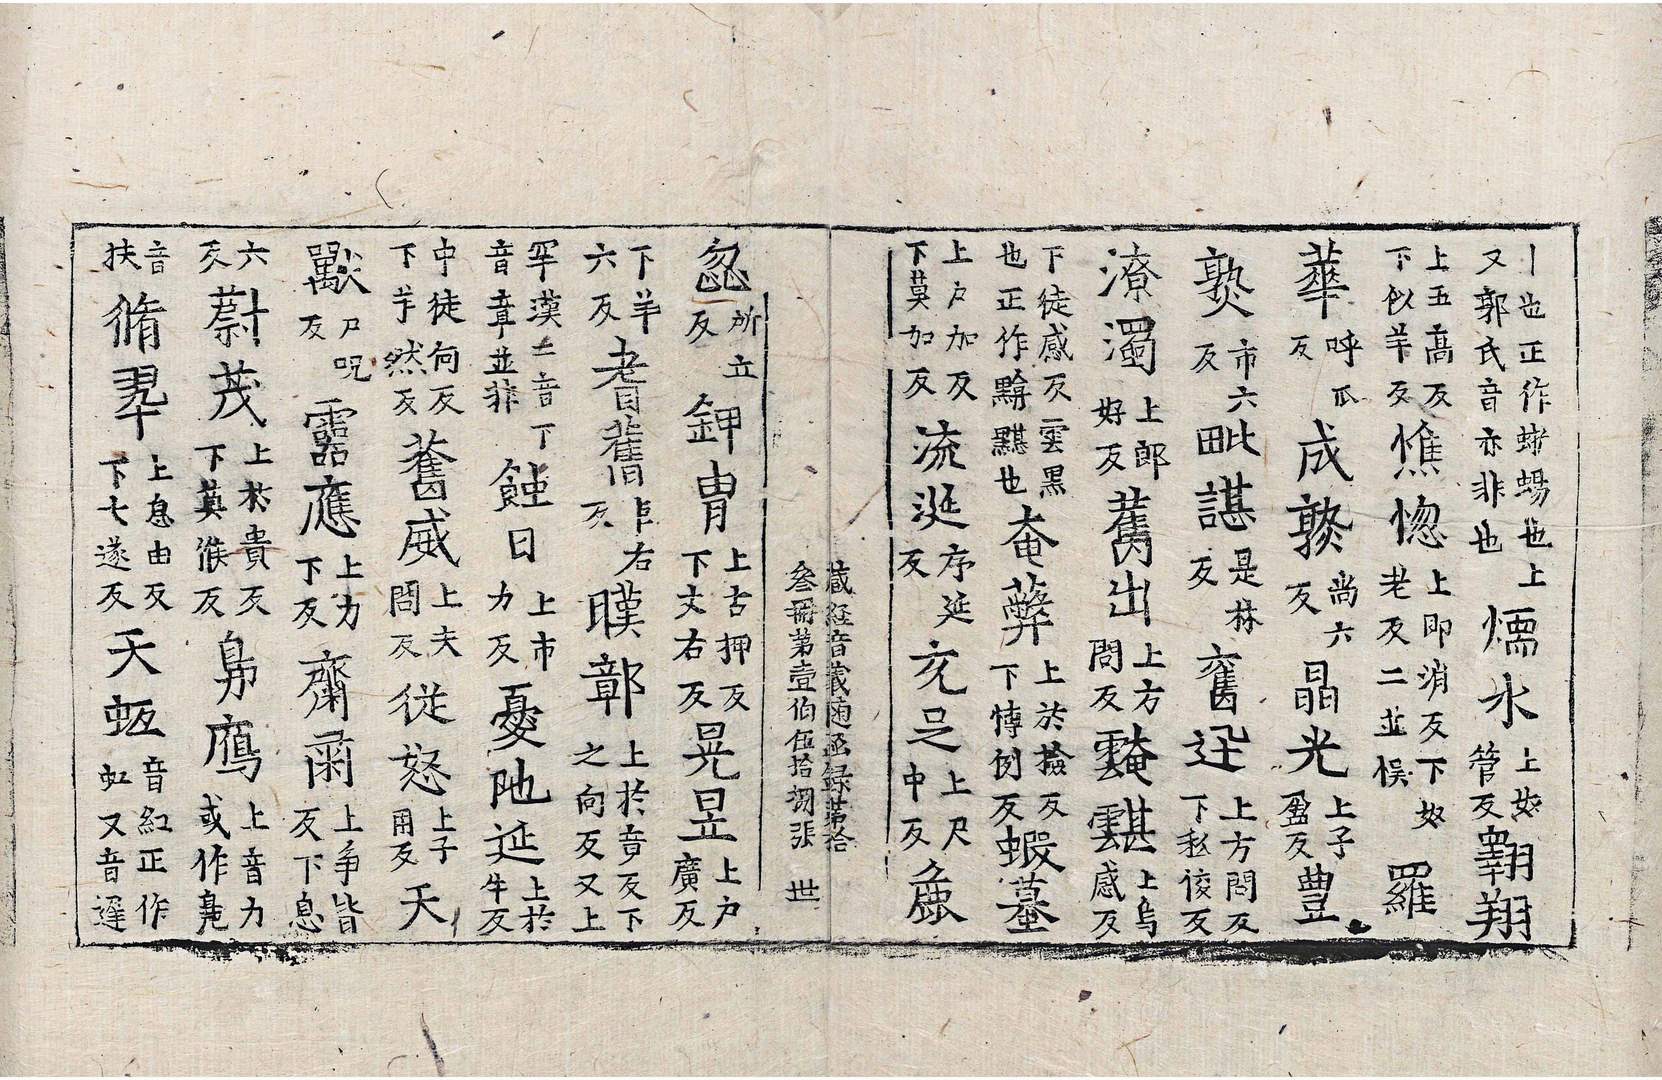 丨也正作蜥蜴也上
又郭氏音亦非也
㷉水
上奴
管反
翱翔
上五高反
下似羊反
憔惚
上即消反下奴
老反二並悮
羅
華
呼瓜
反
成𦏧
尚六
反
晶光
上子
盈反
豊
𤍨
市六
反
毗諶
是林
反
奮迅
上方問反
下私俊反
潦濁
上郎
好反
奮出
上方
問反
䨄䨷
上烏
感反
下徒感反雲黑
也正作黭黮也
奄弊
上於撿反
下悑例反
蝦蟇
上户加反
下莫加反
流涎
序延
反
充足
上尺
中反
麁
藏経音義随函録第拾
叄冊第壹伯伍拾捌張 世
澁
所立
反
鉀胄
上古押反
下丈右反
晃昱
上户
廣反
下羊
六反
耆舊
𠂤右
反
暎鄣
上於竟反下
之向反又上
罕漢二音下
音章並非
蝕日
上市
力反
憂阤延
上於
牛反
中徒何反
下羊然反
奮威
上夫
問反
従怒
上子
用反
天
獸
尸呪
反
靈應
上力
下反
齋肅
上争皆
反下息
六
反
蔚茂
上於貴反
下莫㑨反
鳧鴈
上音力
或作鳧
音
扶
脩翠
上息由反
下七遂反
天蚟
音紅正作
虹又音遅